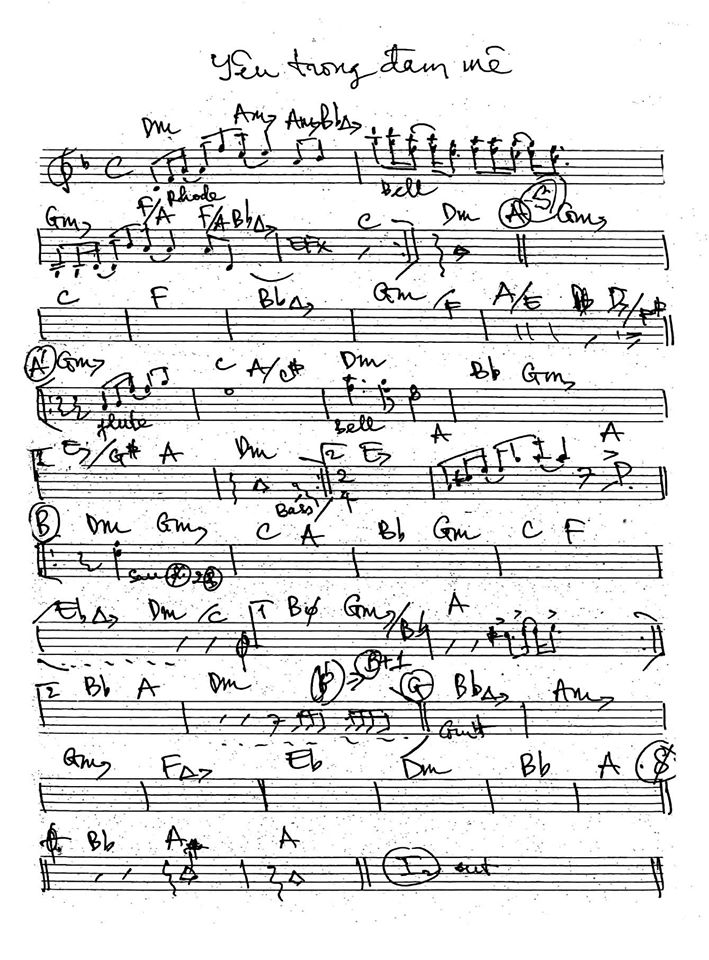 Yêu trong đam mê
Dm Am7 Am7 Bb△7
b C
Rhode Bell
Gm7 F/A F/A Bb△7 C Dm A S Gm7
EFx
C F Bb△7 Gm /F A/E D7/F#
A' Gm7 C A/C# Dm Bb Gm7
flute Bell
1 E7/G# A Dm 2 E7 A A
Bass 2/4
B Dm Gm7 C A Bb Gm C F
sau 2
Eb△7 Dm /C 1 Bø Gm7/Bb A
2 Bb A Dm B+1 G Bb△7 Am7
Guitt
Gm7 F△7 Eb Dm Bb A
Bb A A
I2 out